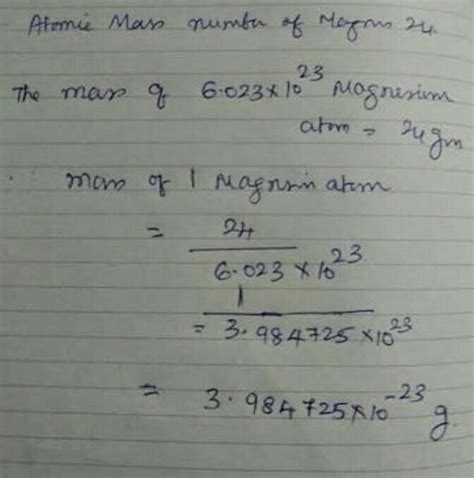 Atomic Mass number of Magnus 24.
The mass of 6.023×10^23 Magnesium
atom = 24 gm
mass of 1 Magnesium atom
= 24
6.023 × 10^23
1
= 3.984725 ×10^23
= 3.984725×10^-23 g